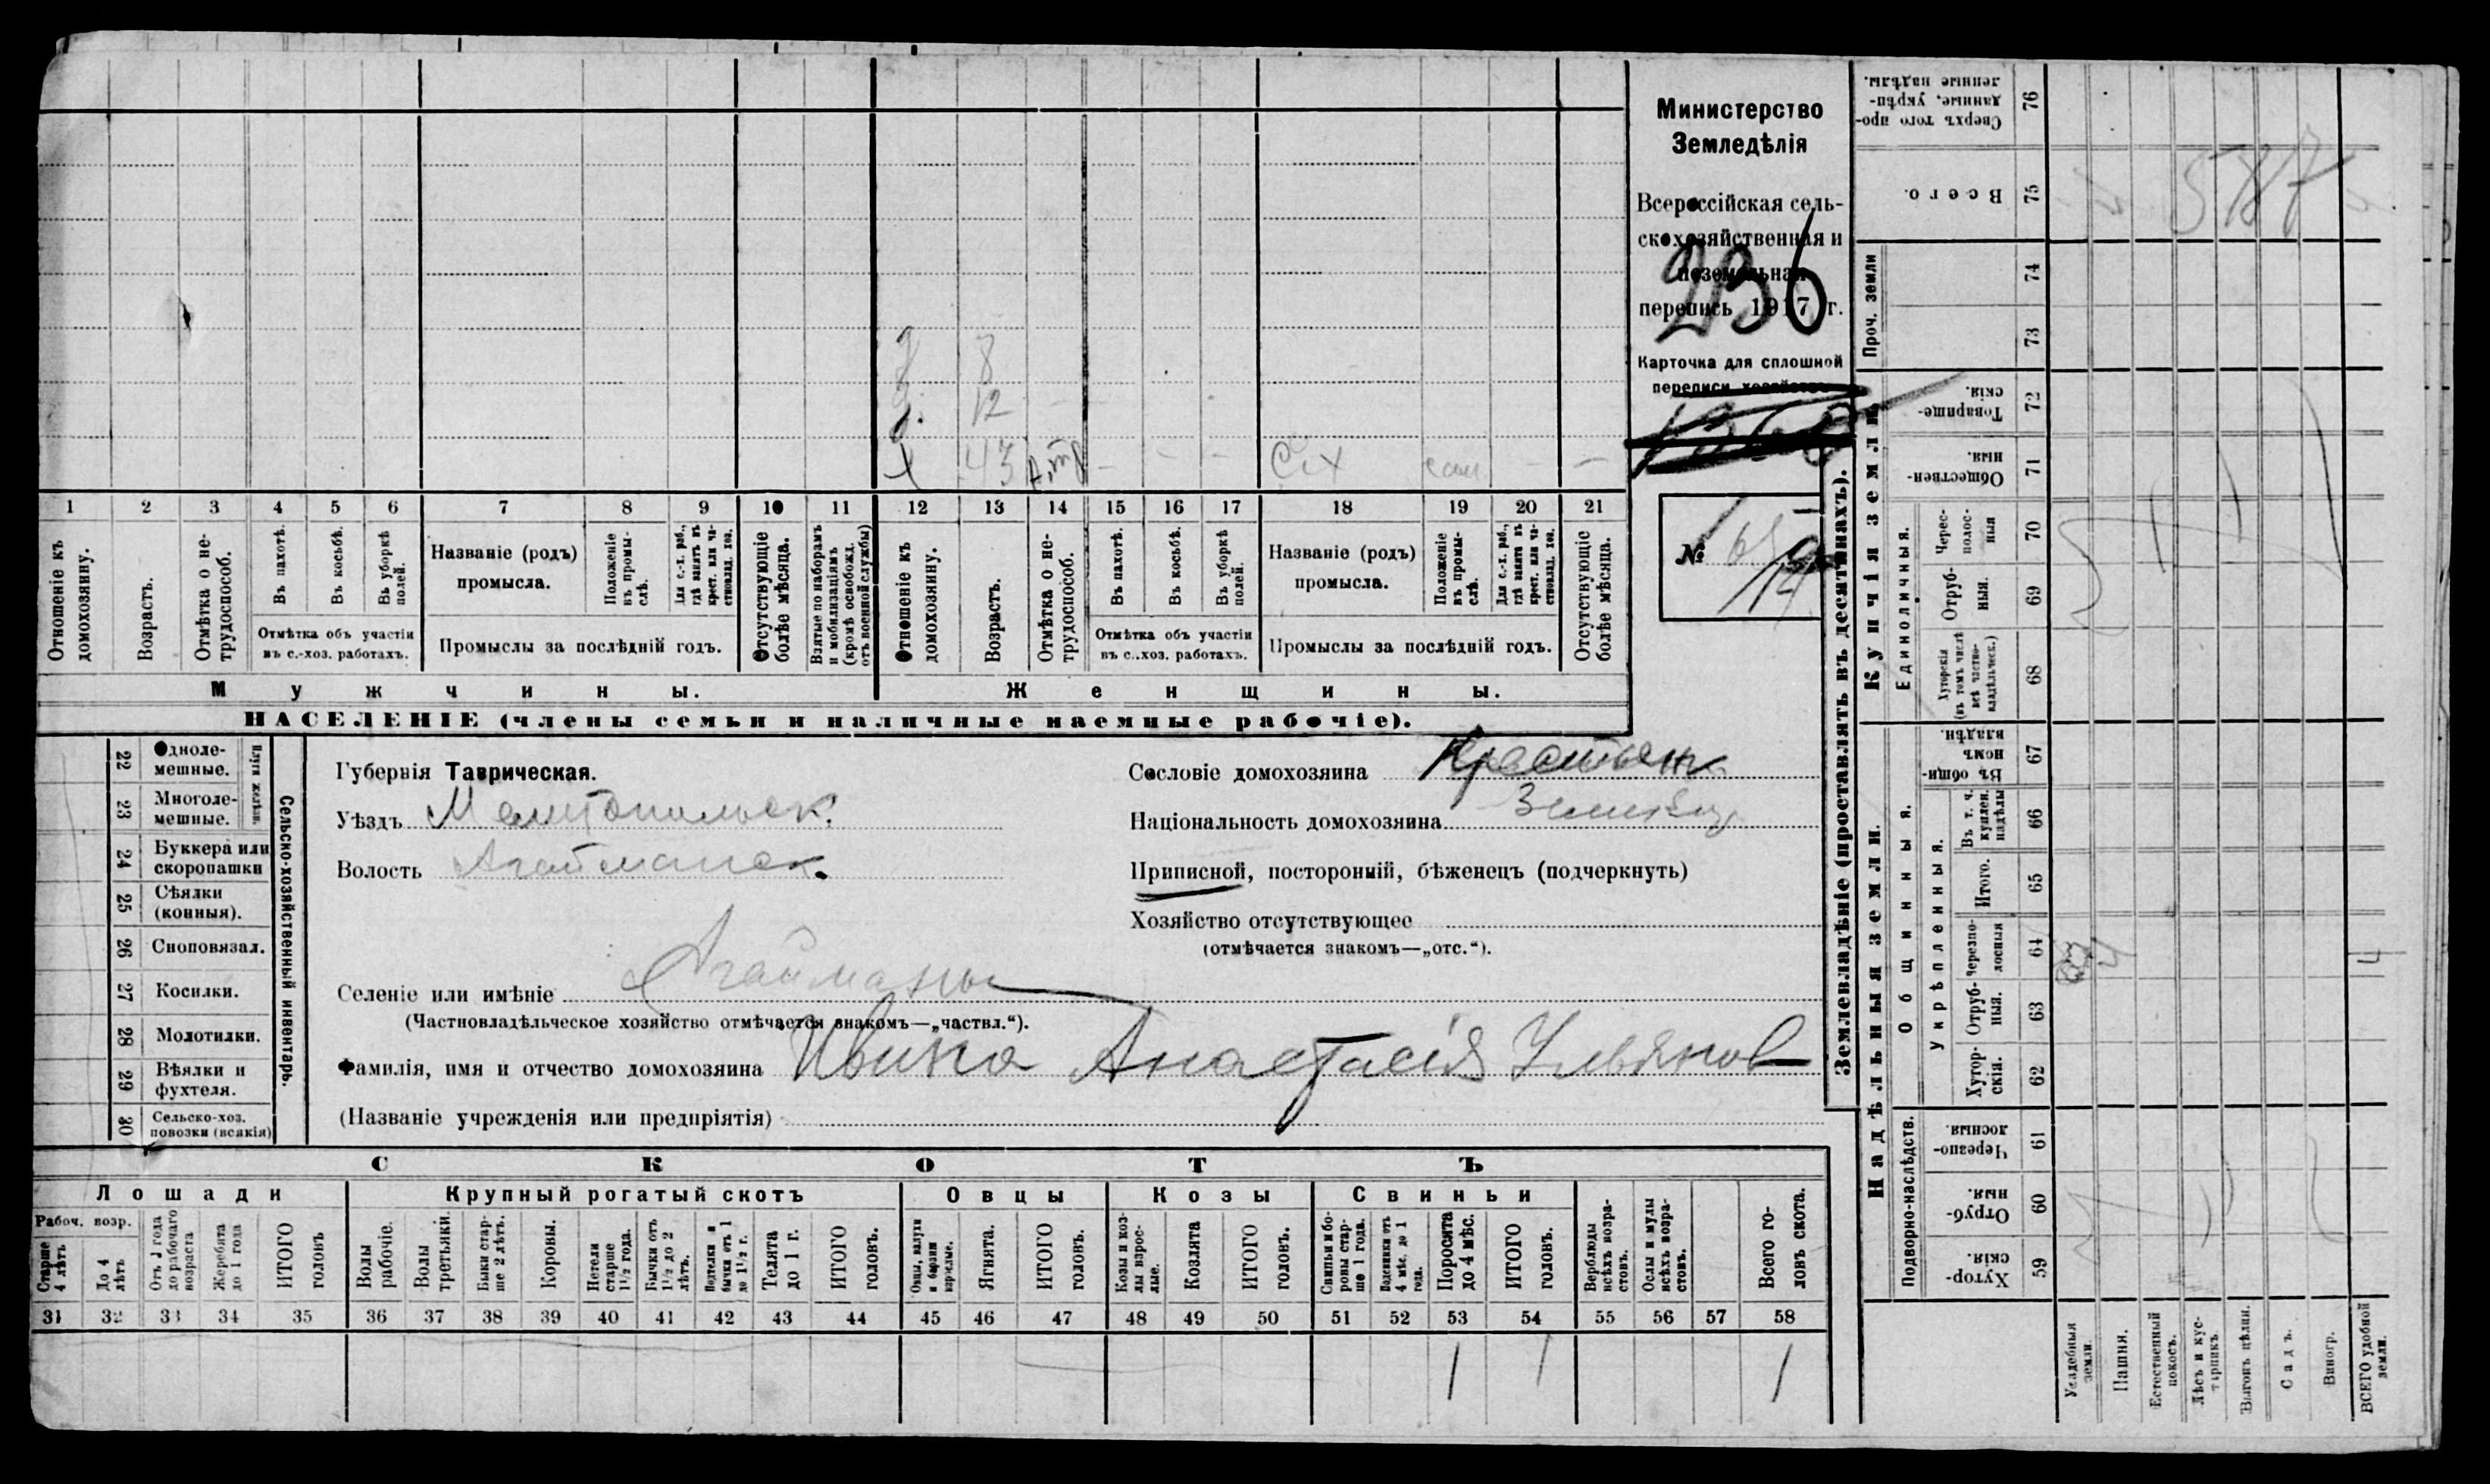 Министерство
Земледѣлія
Всероссійская сель-
скохозяйственная и
поземельная
перепись 1917 г.
236
Карточка для сплошной
переписи хозяйствъ
№
д 8
д. 12
х 43 - - - - -
1 2 3 4 5 6 7 8 9 10 11 12 13 14 15 16 17 18 19 20 21
Отношеніе къ домохозяину.
Возрастъ.
Отмѣтка о не-трудоспособ.
Въ пахотѣ.
Въ косьбѣ.
Въ уборкѣ полей.
Отмѣтка объ участіи
въ с.-хоз. работахъ.
Названіе (родъ)
промысла.
Положеніе въ промы-слѣ.
Для с.-х. раб., гдѣ занятъ въ крест. или ча-стновлад. хоз.
Промыслы за послѣдній годъ.
Отсутствующіе болѣе мѣсяца.
Взятые по наборамъ и мобилизаціямъ (кромѣ освобожд. отъ военной службы)
Отношеніе къ домохозяину.
Возрастъ.
Отмѣтка о не-трудоспособ.
Въ пахотѣ.
Въ косьбѣ.
Въ уборкѣ полей.
Отмѣтка объ участіи
въ с.-хоз. работахъ.
Названіе (родъ)
промысла.
Положеніе въ промы-слѣ.
Для с.-х. раб., гдѣ занята въ крест. или ча-стновлад. хоз.
Промыслы за послѣдній годъ.
Отсутствующіе болѣе мѣсяца.
Мужчины.
Женщины.
НАСЕЛЕНІЕ (члены семьи и наличные наемные рабочіе).
Сельско-хозяйственный инвентарь.
Плуги желѣзн.
22 Одноле-мешные.
23 Многоле-мешные.
24 Буккера или скоропашки
25 Сѣялки (конныя).
26 Сноповязал.
27 Косилки.
28 Молотилки.
29 Вѣялки и фухтеля.
30 Сельско-хоз. повозки (всякія)
Губернія Таврическая.
Уѣздъ Мелитопольск.
Волость Агайманск.
Селеніе или имѣніе Агайманы
(Частновладѣльческое хозяйство отмѣчается знакомъ—„частвл.“).
Фамилія, имя и отчество домохозяина Ивина Анастасія Ульянов
(Названіе учрежденія или предпріятія)
Сословіе домохозяина Крестьян.
Національность домохозяина
Приписной, посторонній, бѣженецъ (подчеркнуть)
Хозяйство отсутствующее
(отмѣчается знакомъ—„отс.“).
СКОТЪ
Лошади
Рабоч. возр.
Старше 4 лѣтъ
До 4 лѣтъ
Отъ 1 года до рабочаго возраста
Жеребята до 1 года
ИТОГО головъ
Крупный рогатый скотъ
Волы рабочіе.
Волы третьяки.
Быки стар-ше 2 лѣтъ.
Коровы.
Нетели старше 1½ года.
Бычки отъ 1½ до 2 лѣтъ.
Подтелки и бычки отъ 1 до 1½ г.
Телята до 1 г.
ИТОГО головъ.
Овцы
Овцы, валухи и бараны взрослые.
Ягнята.
ИТОГО головъ.
Козы
Козы и коз-лы взрос-лые.
Козлята
ИТОГО головъ.
Свиньи
Свиньи и бо-ровы стар-ше 1 года.
Подсвинки отъ 4 мѣс. до 1 года.
Поросята до 4 мѣс.
ИТОГО головъ.
Верблюды всѣхъ возра-стовъ.
Ослы и мулы всѣхъ возра-стовъ.
Всего го-ловъ скота.
31 32 33 34 35 36 37 38 39 40 41 42 43 44 45 46 47 48 49 50 51 52 53 54 55 56 57 58
1 1 1
Землевладѣніе (проставлять въ десятинахъ).
Купчія земли.
Надѣльныя земли.
Сверхъ того про-данные, укрѣп-ленные надѣлы. 76
Всего. 75
587
Проч. земли 74 73
Товарище-скія. 72
Обществен-ныя. 71
Единоличныя.
Черес-полос-ныя 70
Отруб-ныя. 69
Хуторскія (въ томъ числѣ всѣ частно-владѣльческ.) 68
Общинныя.
Въ общин-номъ владѣн. 67
Укрѣпленныя.
Въ т. ч. куплен. надѣлы 66
Итого. 65
Черезпо-лосныя 64
Отруб-ныя. 63
Хутор-скія. 62
Подворно-наслѣдств.
Черезпо-лосныя. 61
Отруб-ныя. 60
Хутор-скія. 59
Усадебныя земли.
Пашня.
Естественный покосъ.
Лѣсъ и кус-тарникъ.
Выгонъ цѣлин.
Садъ.
Виногр.
ВСЕГО удобной земли.